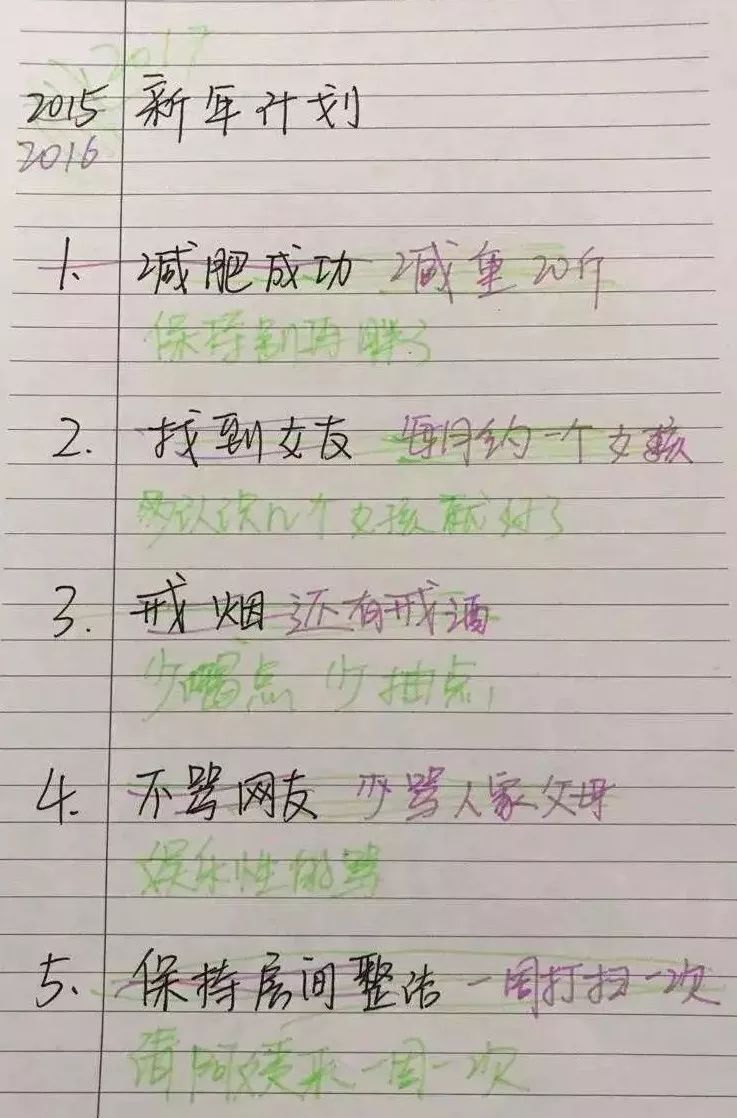 2017
2015 新年计划
2016
1. 减肥成功 减重20斤
保持别再胖了
2. 找到女友 每月约一个女孩
多认识几个女孩就好了
3. 戒烟 还有戒酒
少喝点 少抽点
4. 不骂网友 少骂人家父母
娱乐性的骂
5. 保持房间整洁 一周打扫一次
请阿姨来一周一次